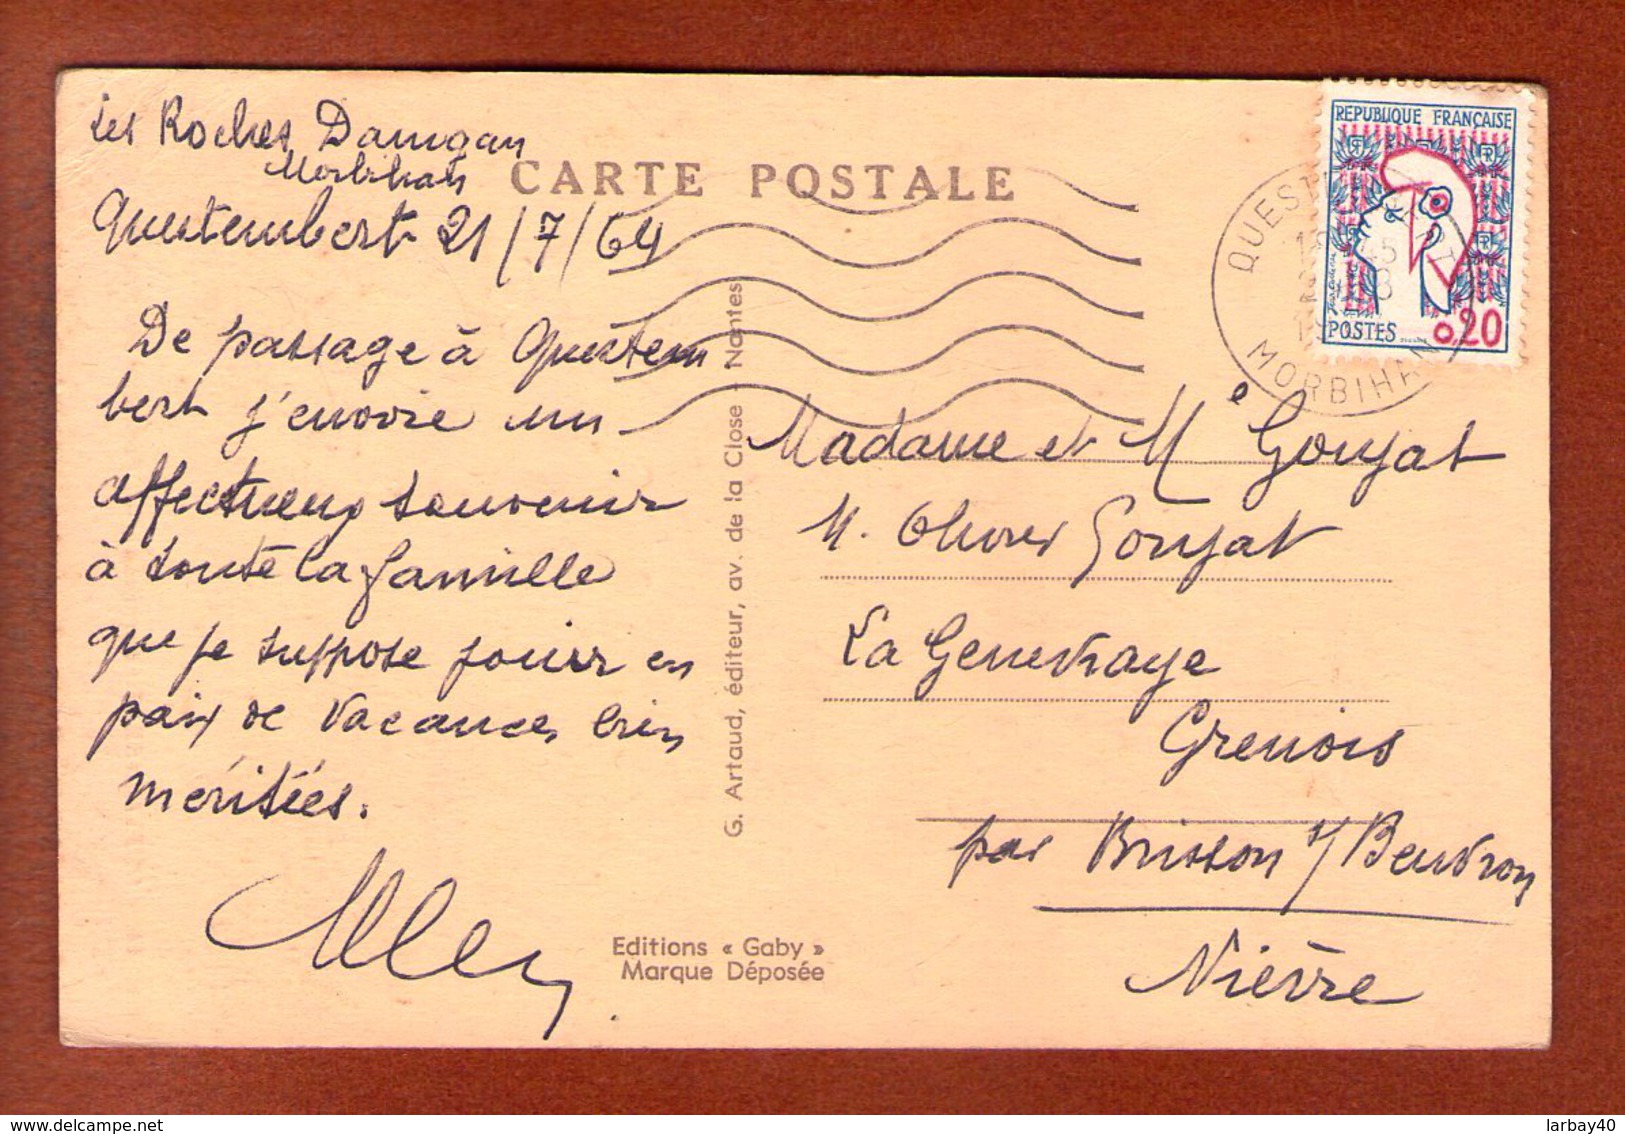 Les Roches Damgan
Morbihan
Questembert 21/7/64
De passage à Questem
bert j'envoie un
affectueux souvenir
à toute la famille
que je suppose jouir en
paix de vacances bien
méritées.
CARTE POSTALE
G. Artaud, éditeur, av. de la Close - Nantes
Editions « Gaby »
Marque Déposée
REPUBLIQUE FRANÇAISE
POSTES 0,20
QUESTEMBERT
MORBIHAN
Madame et Me Goujat
M. Olivier Goujat
La Genevraye
Grenois
par Brinon s/ Beuvron
Nièvre
delcampe.net
larbay40